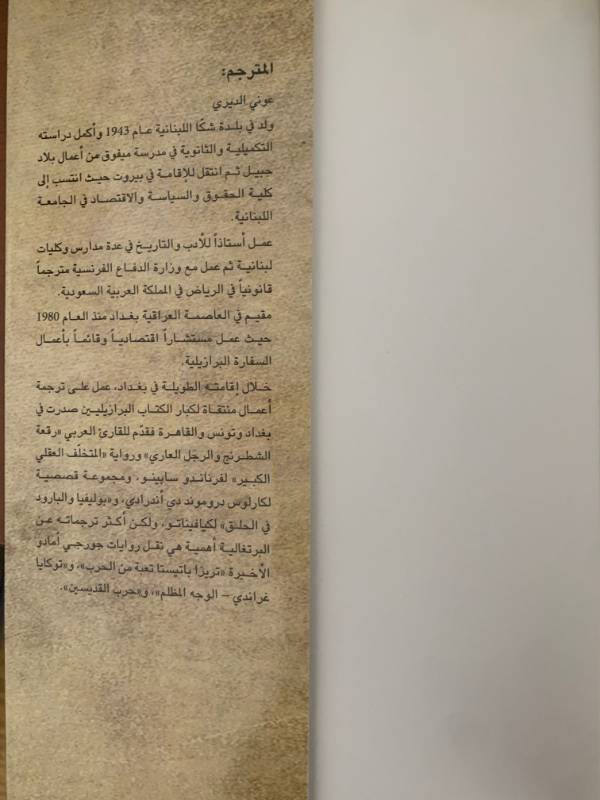 المترجم:
عوني الديري
ولد في بلدة شكّا اللبنانية عام 1943 وأكمل دراسته
التكميلية والثانوية في مدرسة ميفوق من أعمال بلاد
جبيل ثم انتقل للإقامة في بيروت حيث انتسب إلى
كلية الحقوق والسياسة والاقتصاد في الجامعة
اللبنانية.
عمل أستاذاً للأدب والتاريخ في عدة مدارس وكليات
لبنانية ثم عمل مع وزارة الدفاع الفرنسية مترجماً
قانونياً في الرياض في المملكة العربية السعودية.
مقيم في العاصمة العراقية بغداد منذ العام 1980
حيث عمل مستشاراً اقتصادياً وقائماً بأعمال
السفارة البرازيلية.
خلال إقامته الطويلة في بغداد، عمل على ترجمة
أعمال منتقاة لكبار الكتاب البرازيليين صدرت في
بغداد وتونس والقاهرة فقدّم للقارئ العربي «رقعة
الشطرنج والرجل العاري» ورواية «المتخلّف العقلي
الكبير» لفرناندو سابينو، ومجموعة قصصية
لكارلوس دروموند دي أندرادي، و«بوليفيا والبارود
في الحلق» لكيافيناتو، ولكن أكثر ترجماته عن
البرتغالية أهمية هي نقل روايات جورجي أمادو
الأخيرة «تريزا باتيستا تعبة من الحرب»، و«توكايا
غراندي – الوجه المظلم»، و«حرب القديسين».